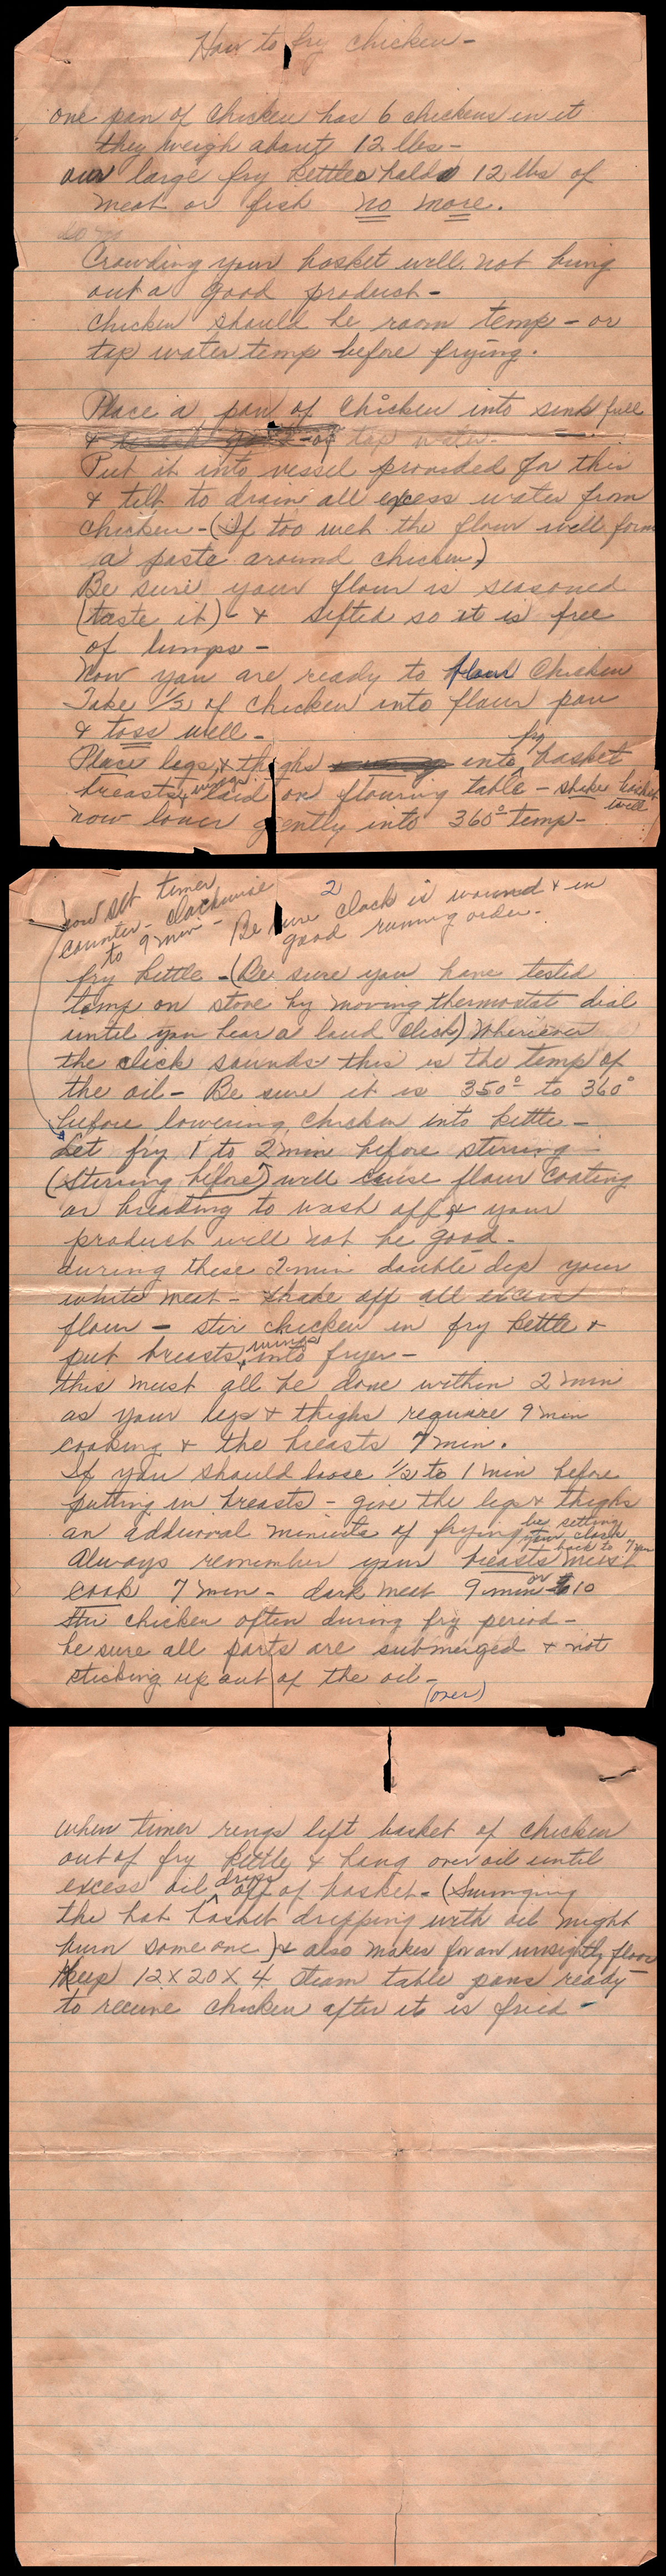 How to fry chicken -
one pan of chicken has 6 chickens in it
they weigh about 12 lbs -
our large fry kettle holds 12 lbs of
meat or fish no more.
Crowding your basket will not bring
out a good product -
chicken should be room temp - or
tap water temp before frying.
Place a pan of chicken into sink full
of tap water -
Put it into vessel provided for this
& tilt to drain all excess water from
chicken - (If too wet the flour will form
a paste around chicken)
Be sure your flour is seasoned
(taste it) - & sifted so it is free
of lumps -
Now you are ready to flour chicken
Take 1/2 of chicken into flour pan
& toss well -
Place legs & thighs into fry basket
breasts & wings laid on flouring table - shake basket well
now lower gently into 360° temp -
2
now set timer
counter-clockwise
to 9 min -
Be sure clock is wound & in
good running order -
fry kettle - (Be sure you have tested
temp on stove by moving thermostat dial
until you hear a loud click) Wherever
the click sounds this is the temp of
the oil - Be sure it is 350° to 360°
before lowering chicken into kettle -
Let fry 1 to 2 min before stirring -
(Stirring before) will cause flour coating
or breading to wash off & your
product will not be good -
during these 2 min double dip your
white meat - shake off all excess
flour - stir chicken in fry kettle &
put breasts, wings into fryer -
this must all be done within 2 min
as your legs & thighs require 9 min
cooking & the breasts 7 min.
If you should loose 1/2 to 1 min before
putting in breasts - give the legs & thighs
an addional minute of frying by setting your clock back to 7 min
Always remember your breasts must
cook 7 min - dark meat 9 min or 10
Stir chicken often during fry period -
be sure all parts are submerged & not
sticking up out of the oil -
(over)
When timer rings lift basket of chicken
out of fry kettle & hang over oil until
excess oil drips off of basket - (Swinging
the hot basket dripping with oil might
burn some one) & also makes for an unsightly floor
Keep 12 X 20 X 4 steam table pans ready
to receive chicken after it is fried -